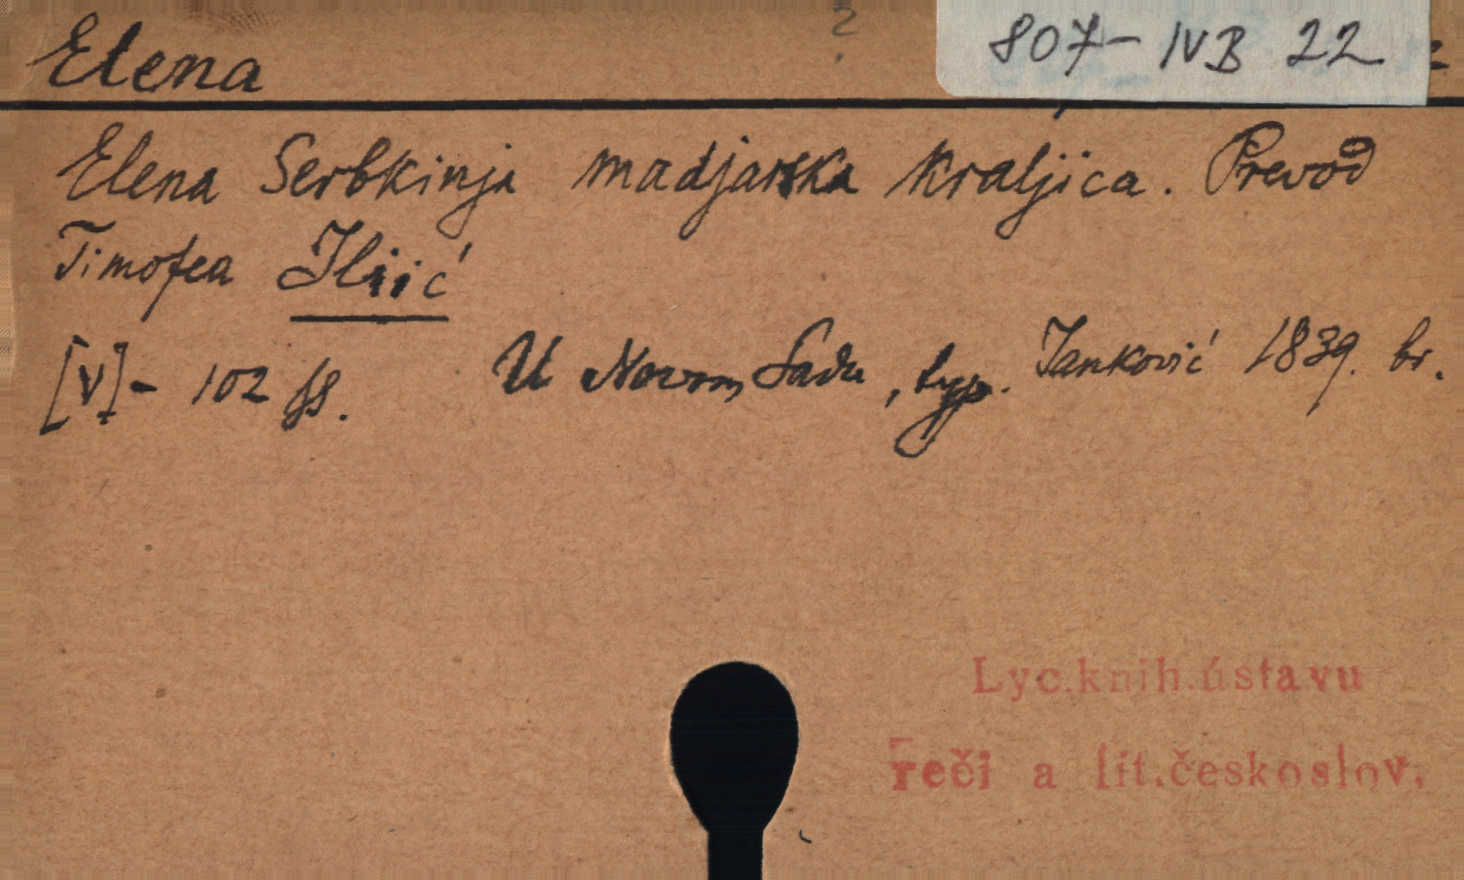 Elena
?
807 - IVB 22
Elena Serbkinja madjarska kraljica. Prevod
Timofea Iliić
[V] - 102 ss. U Novom Sadu, typ. Janković 1839. br.
Lyc.knih.ústavu
řeči a lit.českoslov.